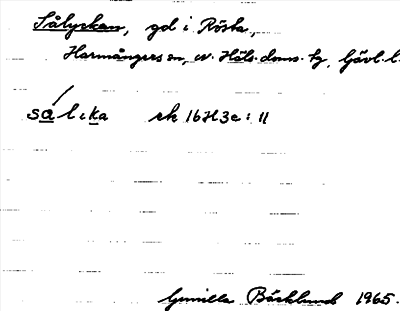 Sålyckan, gd i Rösta,
Harmångers sn, N. Häls. doms. hg, Gävl. l.
sálıka rk 16H3e: 11
Gunilla Bäcklund 1965.